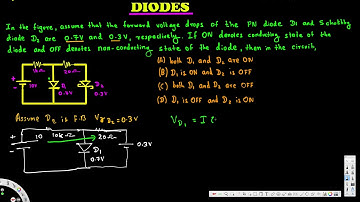 DIODES
In the figure, assume that the forward voltage drops of the PN diode D1 and Schottky
diode D2 are 0.7V and 0.3V, respectively. If ON denotes conducting state of the
diode and OFF denotes non-conducting state of the diode, then in the circuit,
(A) both D1 and D2 are ON
(B) D1 is ON and D2 is OFF
(C) both D1 and D2 are OFF
(D) D1 is OFF and D2 is ON
1kΩ 20Ω
10V D1 D2
0.7V 0.3V
Assume D2 is F.B VγD2=0.3V
10 10kΩ 20Ω
D1 0.3V
0.7V
VD1 = I (